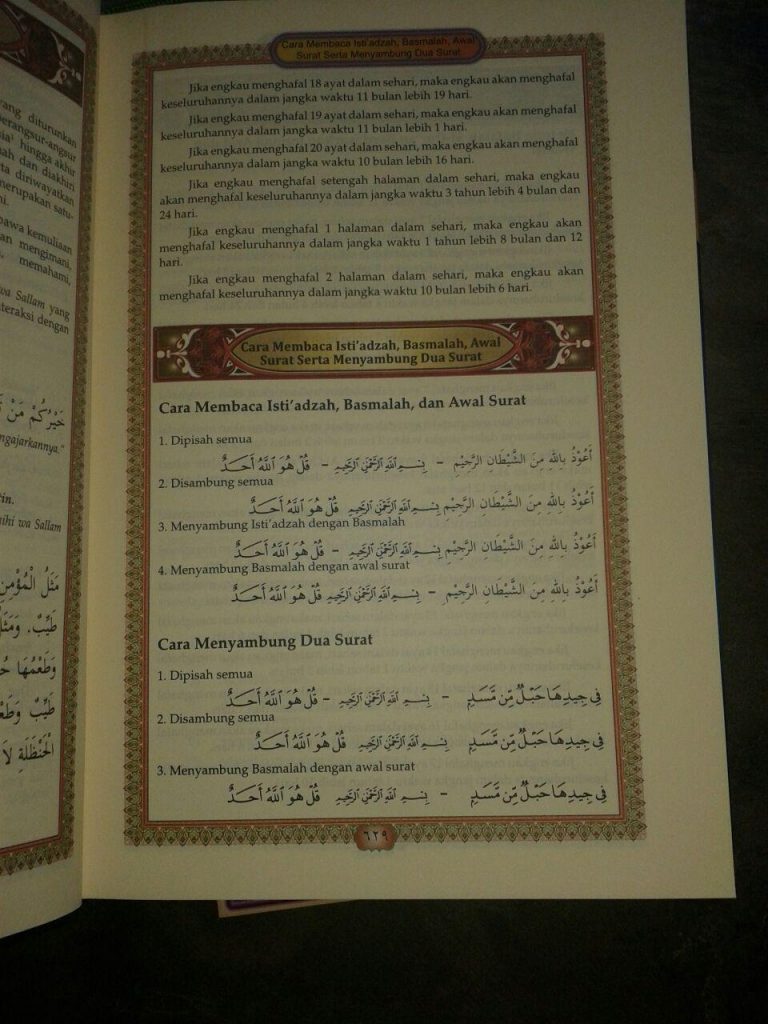 yang diturunkan
berangsur-angsur
sia¹ hingga akhir
ah dan diakhiri
ta diriwayatkan
merupakan satu-
ni.
bawa kemuliaan
an mengimani,
memahami,
wa Sallam yang
teraksi dengan
خَيْرُكُمْ مَنْ
ngajarkannya."
tin.
ihi wa Sallam
مَثَلُ الْمُؤْمِنِ
طَيِّبٌ. وَمَثَلُ
وَطَعْمُهَا
طَيِّبٌ
الْحَنْظَلَةِ
Cara Membaca Isti'adzah, Basmalah, Awal
Surat Serta Menyambung Dua Surat
Jika engkau menghafal 18 ayat dalam sehari, maka engkau akan menghafal
keseluruhannya dalam jangka waktu 11 bulan lebih 19 hari.
Jika engkau menghafal 19 ayat dalam sehari, maka engkau akan menghafal
keseluruhannya dalam jangka waktu 11 bulan lebih 1 hari.
Jika engkau menghafal 20 ayat dalam sehari, maka engkau akan menghafal
keseluruhannya dalam jangka waktu 10 bulan lebih 16 hari.
Jika engkau menghafal setengah halaman dalam sehari, maka engkau
akan menghafal keseluruhannya dalam jangka waktu 3 tahun lebih 4 bulan dan
24 hari.
Jika engkau menghafal 1 halaman dalam sehari, maka engkau akan
menghafal keseluruhannya dalam jangka waktu 1 tahun lebih 8 bulan dan 12
hari.
Jika engkau menghafal 2 halaman dalam sehari, maka engkau akan
menghafal keseluruhannya dalam jangka waktu 10 bulan lebih 6 hari.
Cara Membaca Isti'adzah, Basmalah, Awal
Surat Serta Menyambung Dua Surat
Cara Membaca Isti'adzah, Basmalah, dan Awal Surat
1. Dipisah semua
أَعُوْذُ بِاللهِ مِنَ الشَّيْطَانِ الرَّجِيْمِ – بِسْمِ ٱللَّهِ ٱلرَّحْمَٰنِ ٱلرَّحِيمِ – قُلْ هُوَ ٱللَّهُ أَحَدٌ
2. Disambung semua
أَعُوْذُ بِاللهِ مِنَ الشَّيْطَانِ الرَّجِيْمِ بِسْمِ ٱللَّهِ ٱلرَّحْمَٰنِ ٱلرَّحِيمِ قُلْ هُوَ ٱللَّهُ أَحَدٌ
3. Menyambung Isti'adzah dengan Basmalah
أَعُوْذُ بِاللهِ مِنَ الشَّيْطَانِ الرَّجِيْمِ بِسْمِ ٱللَّهِ ٱلرَّحْمَٰنِ ٱلرَّحِيمِ – قُلْ هُوَ ٱللَّهُ أَحَدٌ
4. Menyambung Basmalah dengan awal surat
أَعُوْذُ بِاللهِ مِنَ الشَّيْطَانِ الرَّجِيْمِ – بِسْمِ ٱللَّهِ ٱلرَّحْمَٰنِ ٱلرَّحِيمِ قُلْ هُوَ ٱللَّهُ أَحَدٌ
Cara Menyambung Dua Surat
1. Dipisah semua
فِى جِيدِهَا حَبْلٌ مِّن مَّسَدٍ – بِسْمِ ٱللَّهِ ٱلرَّحْمَٰنِ ٱلرَّحِيمِ – قُلْ هُوَ ٱللَّهُ أَحَدٌ
2. Disambung semua
فِى جِيدِهَا حَبْلٌ مِّن مَّسَدٍ بِسْمِ ٱللَّهِ ٱلرَّحْمَٰنِ ٱلرَّحِيمِ قُلْ هُوَ ٱللَّهُ أَحَدٌ
3. Menyambung Basmalah dengan awal surat
فِى جِيدِهَا حَبْلٌ مِّن مَّسَدٍ – بِسْمِ ٱللَّهِ ٱلرَّحْمَٰنِ ٱلرَّحِيمِ قُلْ هُوَ ٱللَّهُ أَحَدٌ
٦٢٩